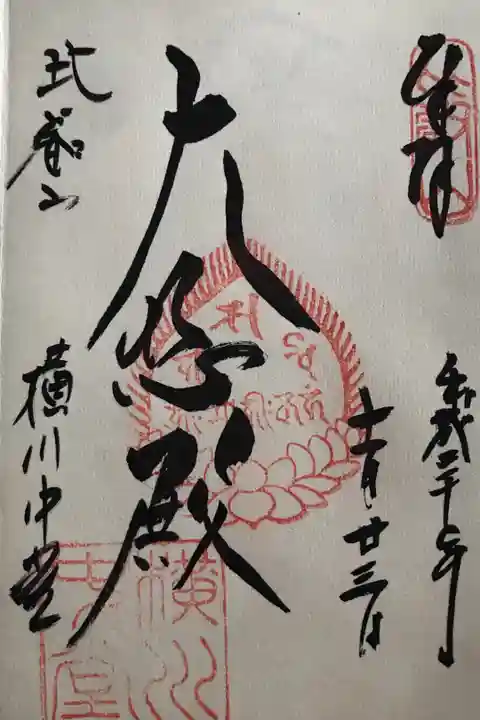 奉拝
平成二十年
十一月廿三日
大悲殿
比叡山
横川中堂
横川
中堂